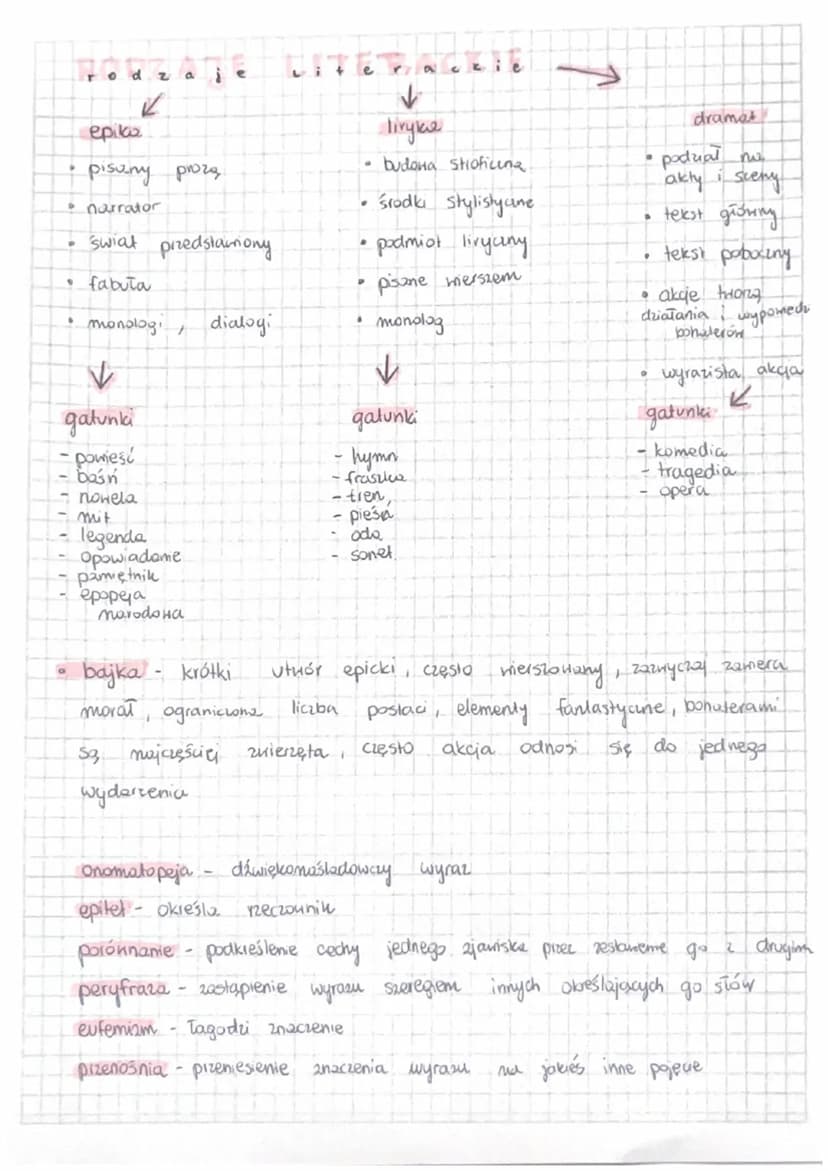 rodzaje literackie
epika
• pisany prozą
• narrator
• świat przedstawiony
• fabuła
• monologi, dialogi
gatunki
- powieść
- baśń
- nowela
- mit
- legenda
- opowiadanie
- pamiętnik
- epopeja
narodowa
liryka
• budowa stroficzna
• środki stylistyczne
• podmiot liryczny
• pisane wierszem
• monolog
gatunki
- hymn
- fraszka
- tren,
- pieśń
- oda
- sonet
dramat
• podział na
akty i sceny
• tekst główny
• tekst poboczny
• akcję tworzą
działania i wypowiedzi
bohaterów
• wyrazista akcja
gatunki
- komedia
- tragedia
- opera
• bajka - krótki utwór epicki, często wierszowany, zazwyczaj zawiera
morał, ograniczona liczba postaci, elementy fantastyczne, bohaterami
są najczęściej zwierzęta, często akcja odnosi się do jednego
wydarzenia
onomatopeja - dźwiękonaśladowczy wyraz
epitet - określa rzeczownik
porównanie - podkreślenie cechy jednego zjawiska przez zestawienie go z drugim
peryfraza - zastąpienie wyrazu szeregiem innych określających go słów
eufemizm - łagodzi znaczenie
przenośnia - przeniesienie znaczenia wyrazu na jakieś inne pojęcie